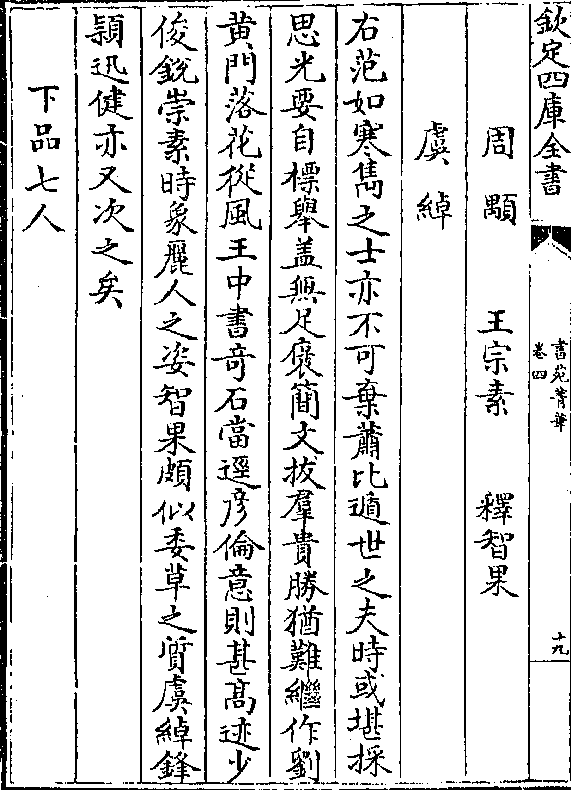 欽定四庫全書
書苑菁華
卷四
十九
周顒 王宗素 釋智果
虞綽
右范如寒儁之士亦不可棄蕭比遁世之夫時或堪採
思光要自標舉盖無足襃簡文拔羣貴勝猶難繼作劉
黄門落花從風王中書奇石當逕彦倫意則甚髙迹少
俊鋭崇素時象麗人之姿智果頗似委草之質虞綽鋒
頴迅健亦又次之矣
下品七人